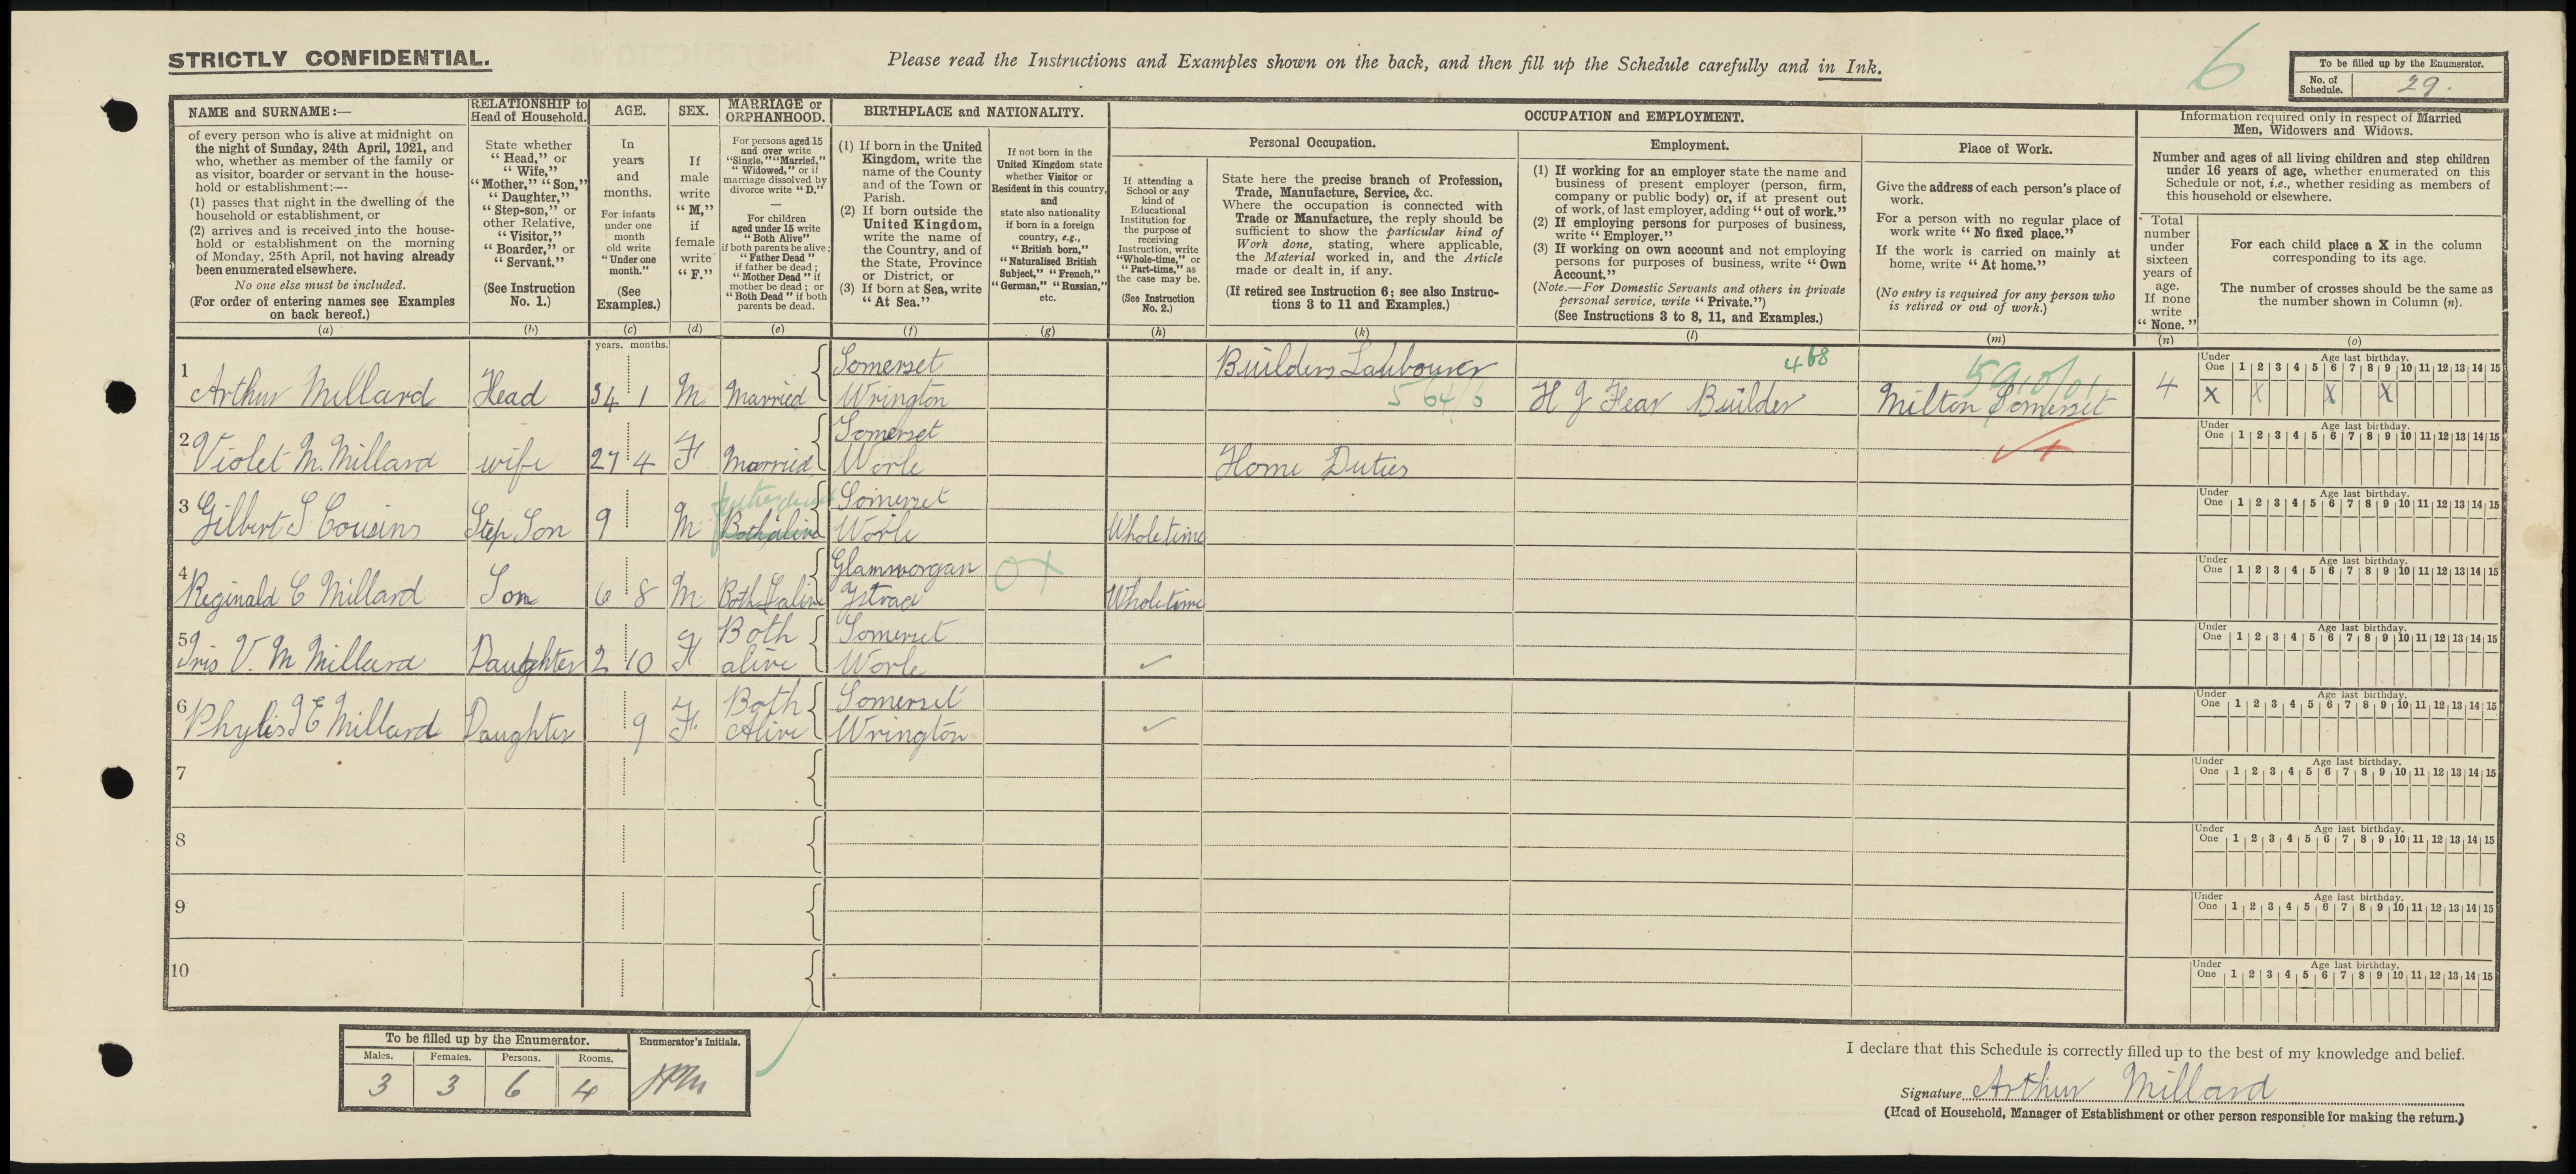 STRICTLY CONFIDENTIAL.
Please read the Instructions and Examples shown on the back, and then fill up the Schedule carefully and in Ink.
6
To be filled up by the Enumerator.
No. of Schedule. 29.
NAME and SURNAME:—
of every person who is alive at midnight on
the night of Sunday, 24th April, 1921, and
who, whether as member of the family or
as visitor, boarder or servant in the house-
hold or establishment:—
(1) passes that night in the dwelling of the
household or establishment, or
(2) arrives and is received into the house-
hold or establishment on the morning
of Monday, 25th April, not having already
been enumerated elsewhere.
No one else must be included.
(For order of entering names see Examples
on back hereof.)
(a)
RELATIONSHIP to
Head of Household.
State whether
"Head," or
"Wife,"
"Mother," "Son,"
"Daughter,"
"Step-son," or
other Relative,
"Visitor,"
"Boarder," or
"Servant."
(See Instruction
No. 1.)
(b)
AGE.
In
years
and
months.
For infants
under one
month
old write
"Under one
month."
(See
Examples.)
(c)
SEX.
If
male
write
"M,"
if
female
write
"F."
(d)
MARRIAGE or
ORPHANHOOD.
For persons aged 15
and over write
"Single," "Married,"
"Widowed," or if
marriage dissolved by
divorce write "D."
—
For children
aged under 15 write
"Both Alive"
if both parents be alive;
"Father Dead"
if father be dead;
"Mother Dead" if
mother be dead; or
"Both Dead" if both
parents be dead.
(e)
BIRTHPLACE and NATIONALITY.
(1) If born in the United
Kingdom, write the
name of the County
and of the Town or
Parish.
(2) If born outside the
United Kingdom,
write the name of
the Country, and of
the State, Province
or District, or
(3) If born at Sea, write
"At Sea."
(f)
If not born in the
United Kingdom state
whether Visitor or
Resident in this country,
and
state also nationality
if born in a foreign
country, e.g.,
"British born,"
"Naturalised British
Subject," "French,"
"German," "Russian,"
etc.
(g)
OCCUPATION and EMPLOYMENT.
Personal Occupation.
If attending a
School or any
kind of
Educational
Institution for
the purpose of
receiving
Instruction, write
"Whole-time," or
"Part-time," as
the case may be.
(See Instruction
No. 2.)
(h)
State here the precise branch of Profession,
Trade, Manufacture, Service, &c.
Where the occupation is connected with
Trade or Manufacture, the reply should be
sufficient to show the particular kind of
Work done, stating, where applicable,
the Material worked in, and the Article
made or dealt in, if any.
(If retired see Instruction 6; see also Instruc-
tions 3 to 11 and Examples.)
(k)
Employment.
(1) If working for an employer state the name and
business of present employer (person, firm,
company or public body) or, if at present out
of work, of last employer, adding "out of work."
(2) If employing persons for purposes of business,
write "Employer."
(3) If working on own account and not employing
persons for purposes of business, write "Own
Account."
(Note.—For Domestic Servants and others in private
personal service, write "Private.")
(See Instructions 3 to 8, 11, and Examples.)
(l)
Place of Work.
Give the address of each person's place of
work.
For a person with no regular place of
work write "No fixed place."
If the work is carried on mainly at
home, write "At home."
(No entry is required for any person who
is retired or out of work.)
(m)
Information required only in respect of Married
Men, Widowers and Widows.
Number and ages of all living children and step children
under 16 years of age, whether enumerated on this
Schedule or not, i.e., whether residing as members of
this household or elsewhere.
Total
number
under
sixteen
years of
age.
If none
write
"None."
(n)
For each child place a X in the column
corresponding to its age.
The number of crosses should be the same as
the number shown in Column (n).
(o)
years. months.
1 Arthur Millard Head 34 1 M Married Somerset Wrington Builders Labbourer 564/6 H J Fear Builder 468 Milton Somerset 4
Under One Age last birthday. 1 2 3 4 5 6 7 8 9 10 11 12 13 14 15
X X X X
2 Violet M. Millard wife 27 4 F Married Somerset Worle Home Duties
Under One Age last birthday. 1 2 3 4 5 6 7 8 9 10 11 12 13 14 15
3 Gilbert S Cousins Step Son 9 M father dead Both alive Somerset Worle Wholetime
Under One Age last birthday. 1 2 3 4 5 6 7 8 9 10 11 12 13 14 15
4 Reginald C Millard Son 6 8 M Both alive Glammorgan Ystrad OX Wholetime
Under One Age last birthday. 1 2 3 4 5 6 7 8 9 10 11 12 13 14 15
5 Iris V. M Millard Daughter 2 10 F Both alive Somerset Worle
Under One Age last birthday. 1 2 3 4 5 6 7 8 9 10 11 12 13 14 15
6 Phylis I E Millard Daughter 9 F. Both Alive Somerset Wrington
Under One Age last birthday. 1 2 3 4 5 6 7 8 9 10 11 12 13 14 15
7
Under One Age last birthday. 1 2 3 4 5 6 7 8 9 10 11 12 13 14 15
8
Under One Age last birthday. 1 2 3 4 5 6 7 8 9 10 11 12 13 14 15
9
Under One Age last birthday. 1 2 3 4 5 6 7 8 9 10 11 12 13 14 15
10
Under One Age last birthday. 1 2 3 4 5 6 7 8 9 10 11 12 13 14 15
To be filled up by the Enumerator.
Males. Females. Persons. Rooms.
3 3 6 4
Enumerator's Initials.
I declare that this Schedule is correctly filled up to the best of my knowledge and belief.
Signature Arthur Millard
(Head of Household, Manager of Establishment or other person responsible for making the return.)